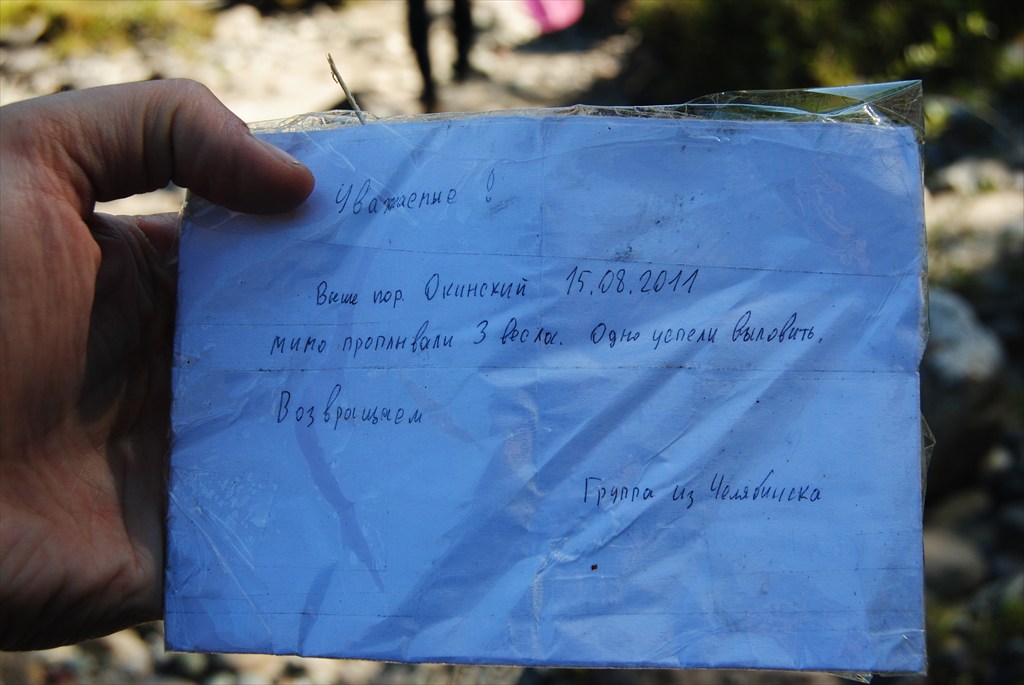 Уважаемые !
Выше пор. Окинский 15.08.2011
мимо проплывали 3 весла. Одно успели выловить.
Возвращаем
Группа из Челябинска